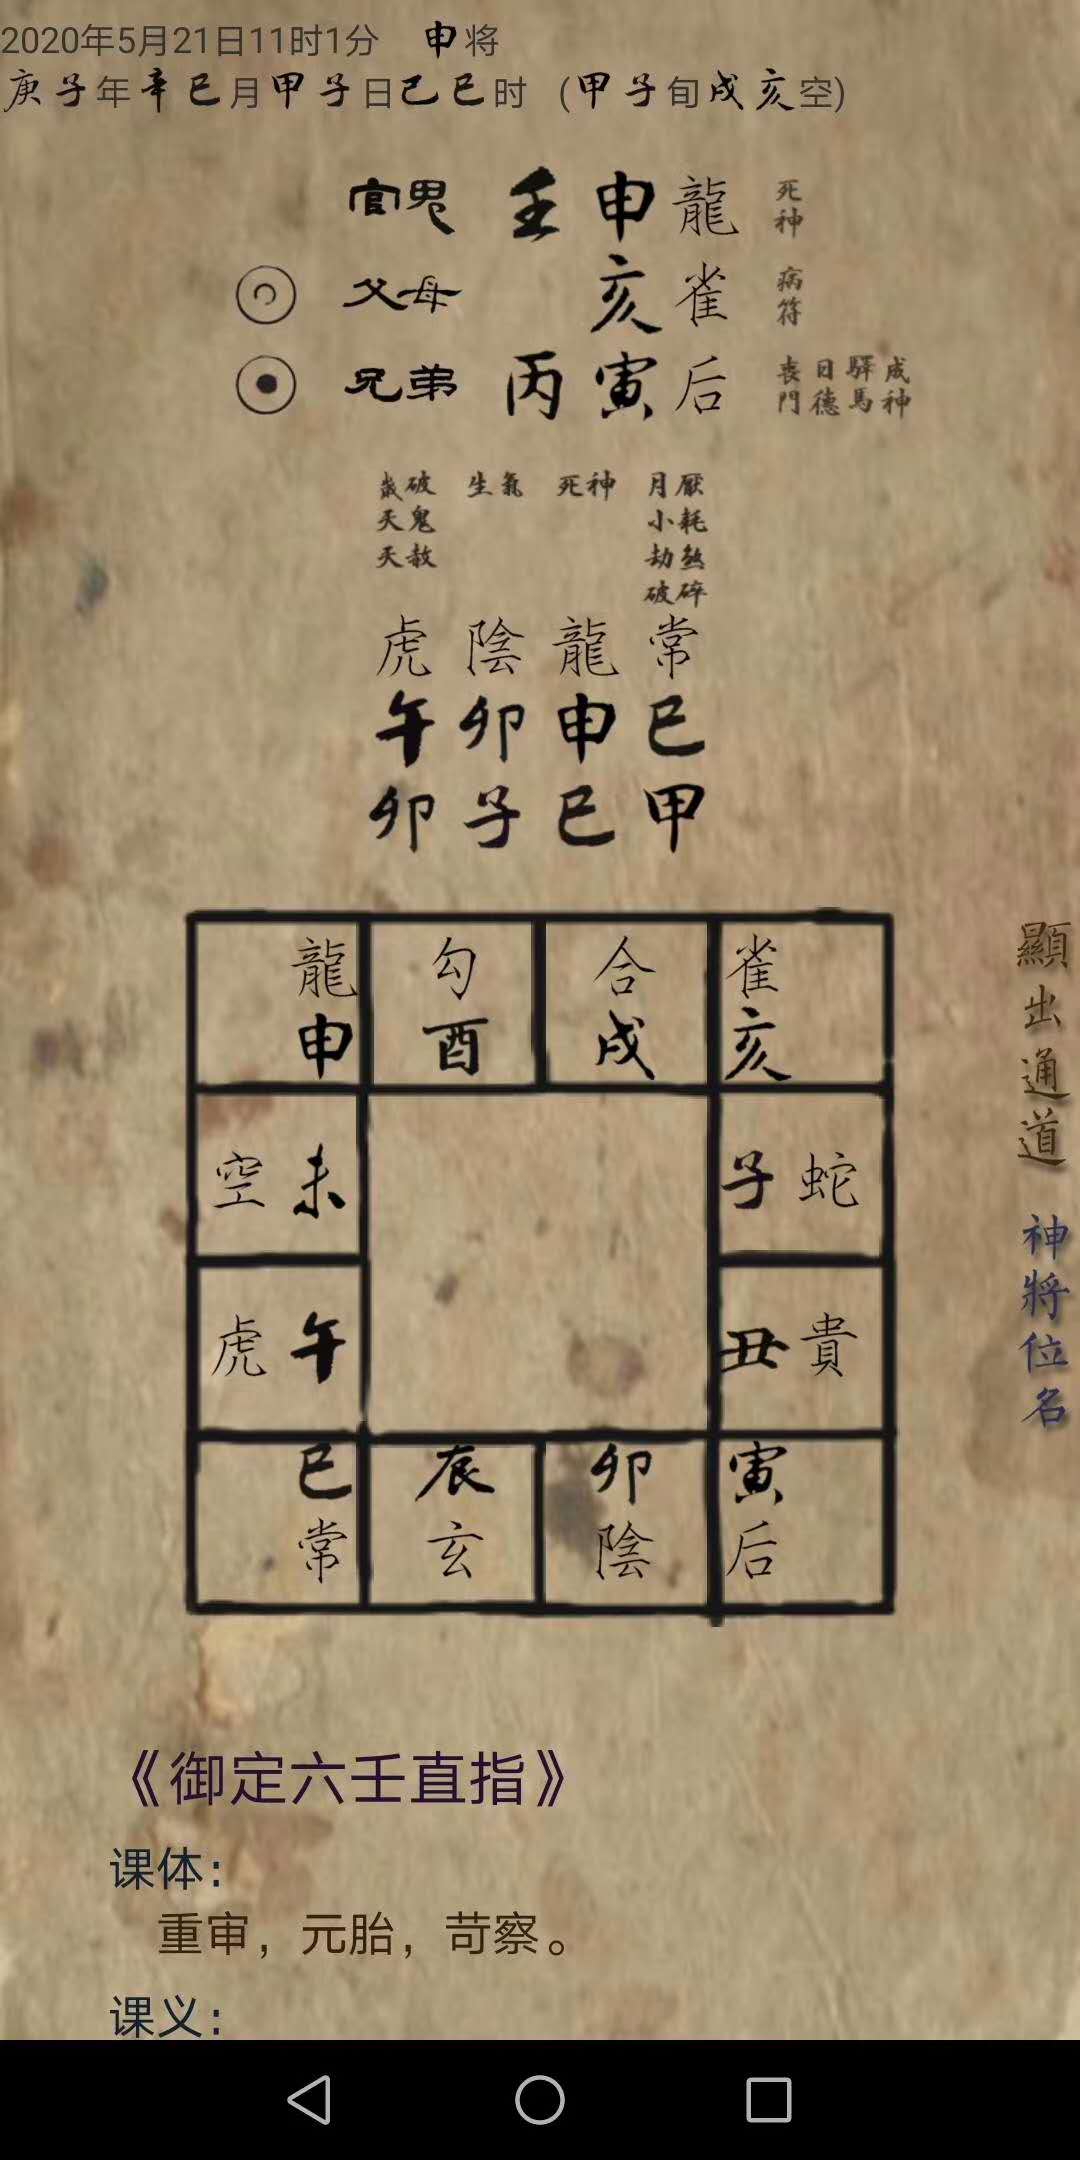 2020年5月21日11时1分 申将
庚子年辛巳月甲子日己巳时 (甲子旬戌亥空)
官鬼 壬申龍 死神
父母 亥雀 病符
兄弟 丙寅后 喪門 日德 驛馬 成神
歲破 生氣 死神 月厭
天鬼 小耗
天赦 劫煞
破碎
虎 陰 龍 常
午 卯 申 巳
卯 子 巳 甲
龍 勾 合 雀
申 酉 戌 亥
空 未 子 蛇
虎 午 丑 貴
巳 辰 卯 寅
常 玄 陰 后
顯出通道
神將位名
《御定六壬直指》
课体：
重审，元胎，苛察。
课义：